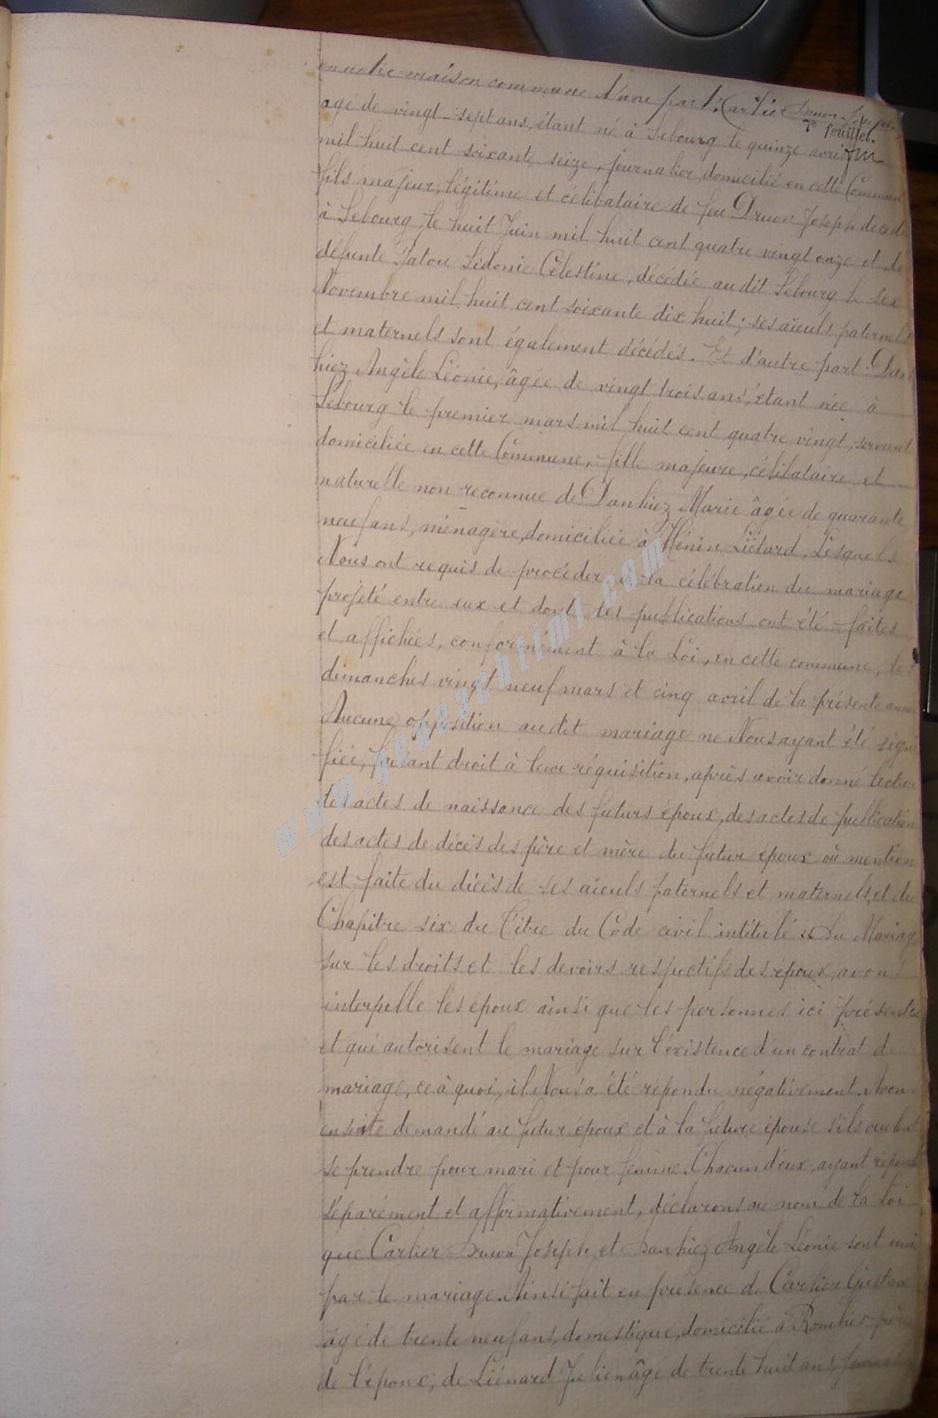 en notre maison commune d'une part. Carlier Druon Joseph
7e feuillet.
âgé de vingt-sept ans, étant né à Sebourg le quinze avril
mil huit cent soixante seize, journalier, domicilié en cette Commune
fils majeur, légitime et célibataire de feu Druon Joseph décédé
à Sebourg le huit Juin mil huit cent quatre vingt onze et de
défunte Patou Sidonie Célestine, décédée audit Sebourg le six
Novembre mil huit cent soixante dix huit; ses aïeuls paternels
et maternels sont également décédés. Et d'autre part Dan
hiez Angèle Léonie, âgée de vingt trois ans, étant née à
Sebourg le premier mars mil huit cent quatre vingt, servante
domiciliée en cette Commune, fille majeure, célibataire et
naturelle non reconnue de Danhiez Marie âgée de quarante
neuf ans, ménagère, domiciliée à Hénin Liétard, Lesquels
Nous ont requis de procéder à la célébration du mariage
projeté entre eux et dont les publications ont été faites
et affichées, conformément à la Loi, en cette commune, les
dimanches vingt neuf mars et cinq avril de la présente année
Aucune opposition audit mariage ne Nous ayant été signi
fiée, faisant droit à leur réquisition, après avoir donné lecture
des actes de naissance des futurs époux, des actes de publication
des actes de décès des père et mère du futur époux où mention
est faite du décès de ses aïeuls paternels et maternels, et du
Chapitre six du Titre du Code civil intitulé « Du Mariage
sur les droits et les devoirs respectifs des époux, avons
interpellé les époux ainsi que les personnes ici présentes
et qui autorisent le mariage sur l'existence d'un contrat de
mariage, ce à quoi, il Nous a été répondu négativement. Avons
ensuite demandé au futur époux et à la future épouse s'ils veulent
se prendre pour mari et pour femme. Chacun d'eux, ayant répondu
séparément et affirmativement, déclarons au nom de la Loi
que Carlier Druon Joseph et Danhiez Angèle Léonie sont unis
par le mariage. Ainsi fait en présence de Carlier Gustave
âgé de trente neuf ans, domestique, domicilié à Rombies frère
de l'époux; de Liénard Julien âgé de trente huit ans,
www.geneachtimi.com